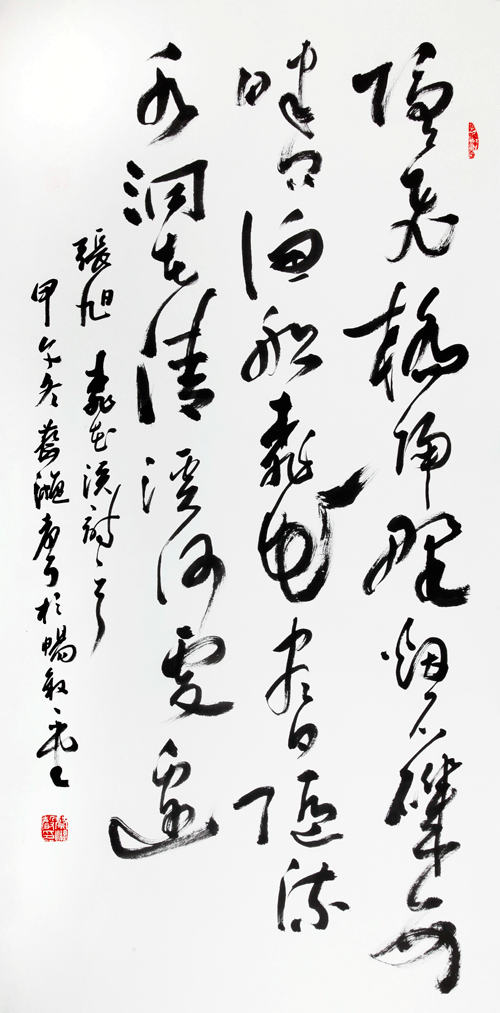 隱隱飛橋隔野烟石磯西
畔問漁船桃花盡日隨流
水洞在清溪何處邊
張旭 桃花溪詩一首
甲午冬 於暢